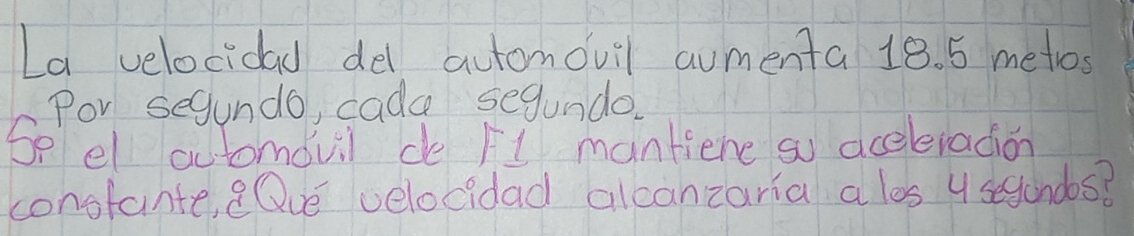 La velocidad del automóvil aumenta 18.5 metros
Por segundo, cada segundo.
Si el automóvil de F1 mantiene su aceleración
constante, ¿Qué velocidad alcanzaría a los 4 segundos?